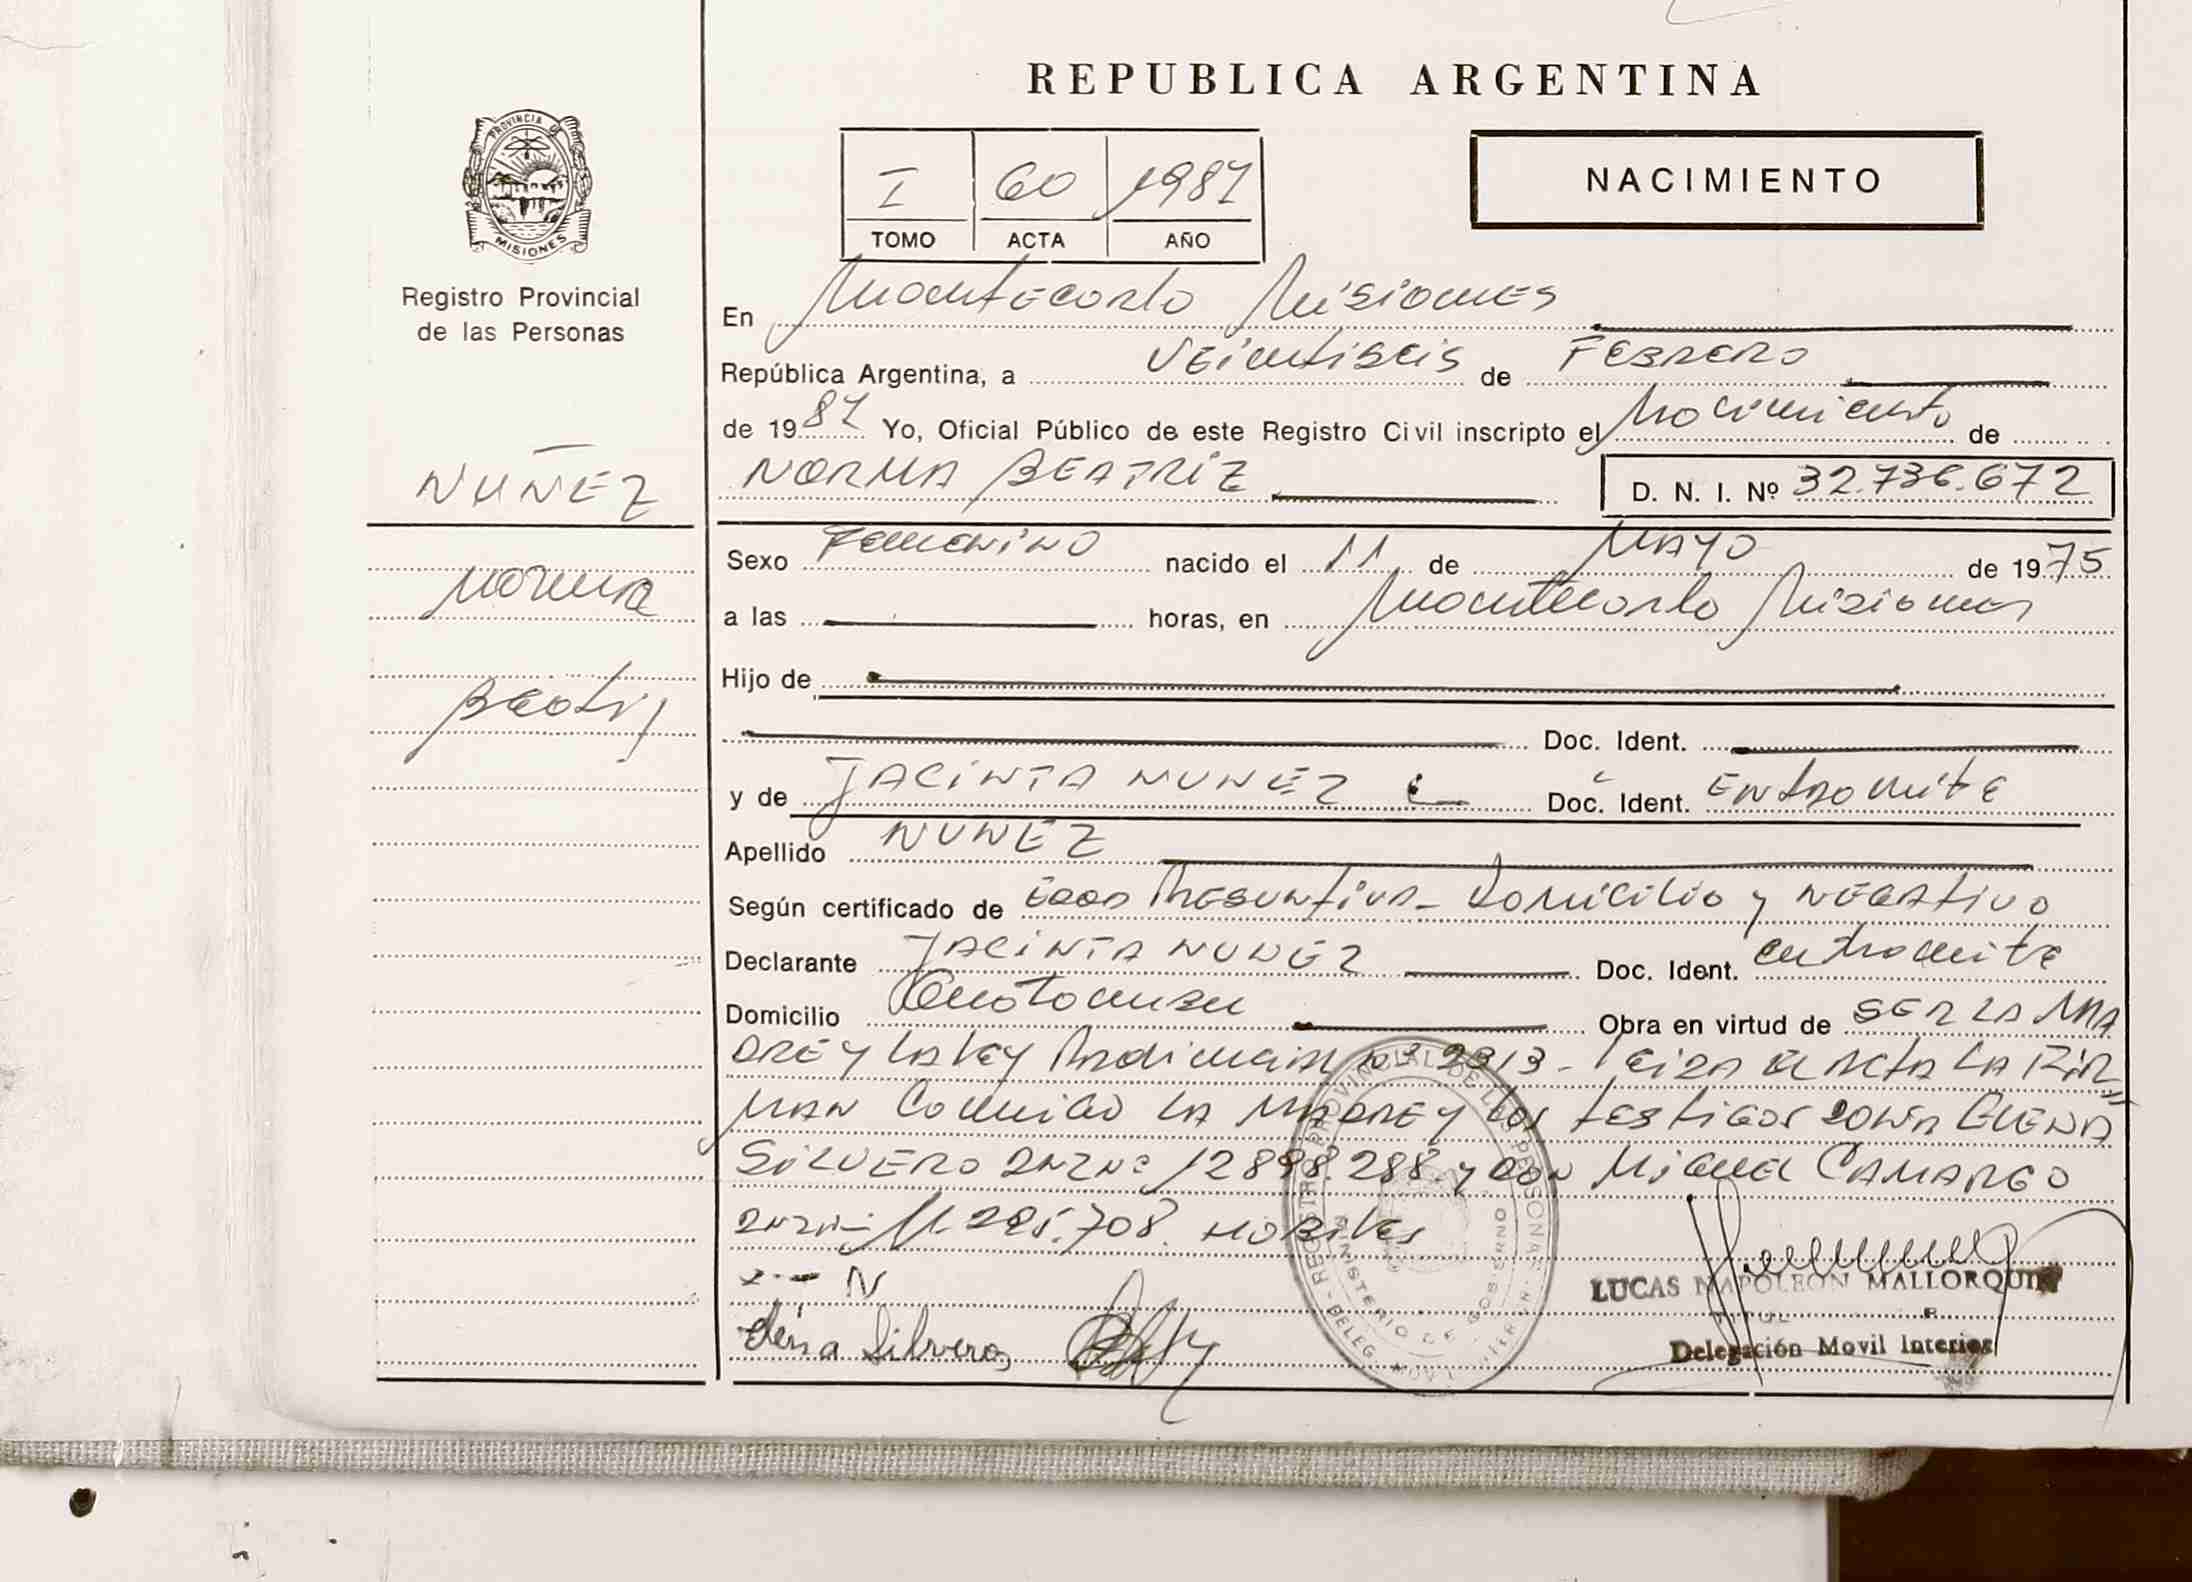 REPUBLICA ARGENTINA
PROVINCIA DE
MISIONES
Registro Provincial
de las Personas
I 60 1987
TOMO ACTA AÑO
NACIMIENTO
En Montecarlo Misiones
República Argentina, a Veintiseis de Febrero
de 1987 Yo, Oficial Público de este Registro Civil inscripto el Nacimiento de
NORMA BEATRIZ D. N. I. Nº 32.736.672
NUÑEZ
Norma
Beatriz
Sexo Femenino nacido el 11 de MAYO de 1975
a las horas, en Montecarlo Misiones
Hijo de
Doc. Ident.
y de JACINTA NUNEZ Doc. Ident. Entramite
Apellido NUNEZ
Según certificado de Edad Presuntiva - Domicilio y NEGATIVO
Declarante JACINTA NUNEZ Doc. Ident. entramite
Domicilio Obra en virtud de SER LA MA
DRE y LA LEY Nº 2313 - Leida el Acta LA FIR
MAN Conmigo LA MADRE y los testigos DOÑA ELENA
SILVERO DNI Nº 12898.288 y DON Miguel CAMARGO
DNI 11.295.708. HABILES
N
Silvero
REGISTRO PROVINCIAL DE LAS PERSONAS
MINISTERIO DE GOBIERNO
DELEG. MOVIL INTERIOR
LUCAS NAPOLEON MALLORQUIN
Delegación Movil Interior